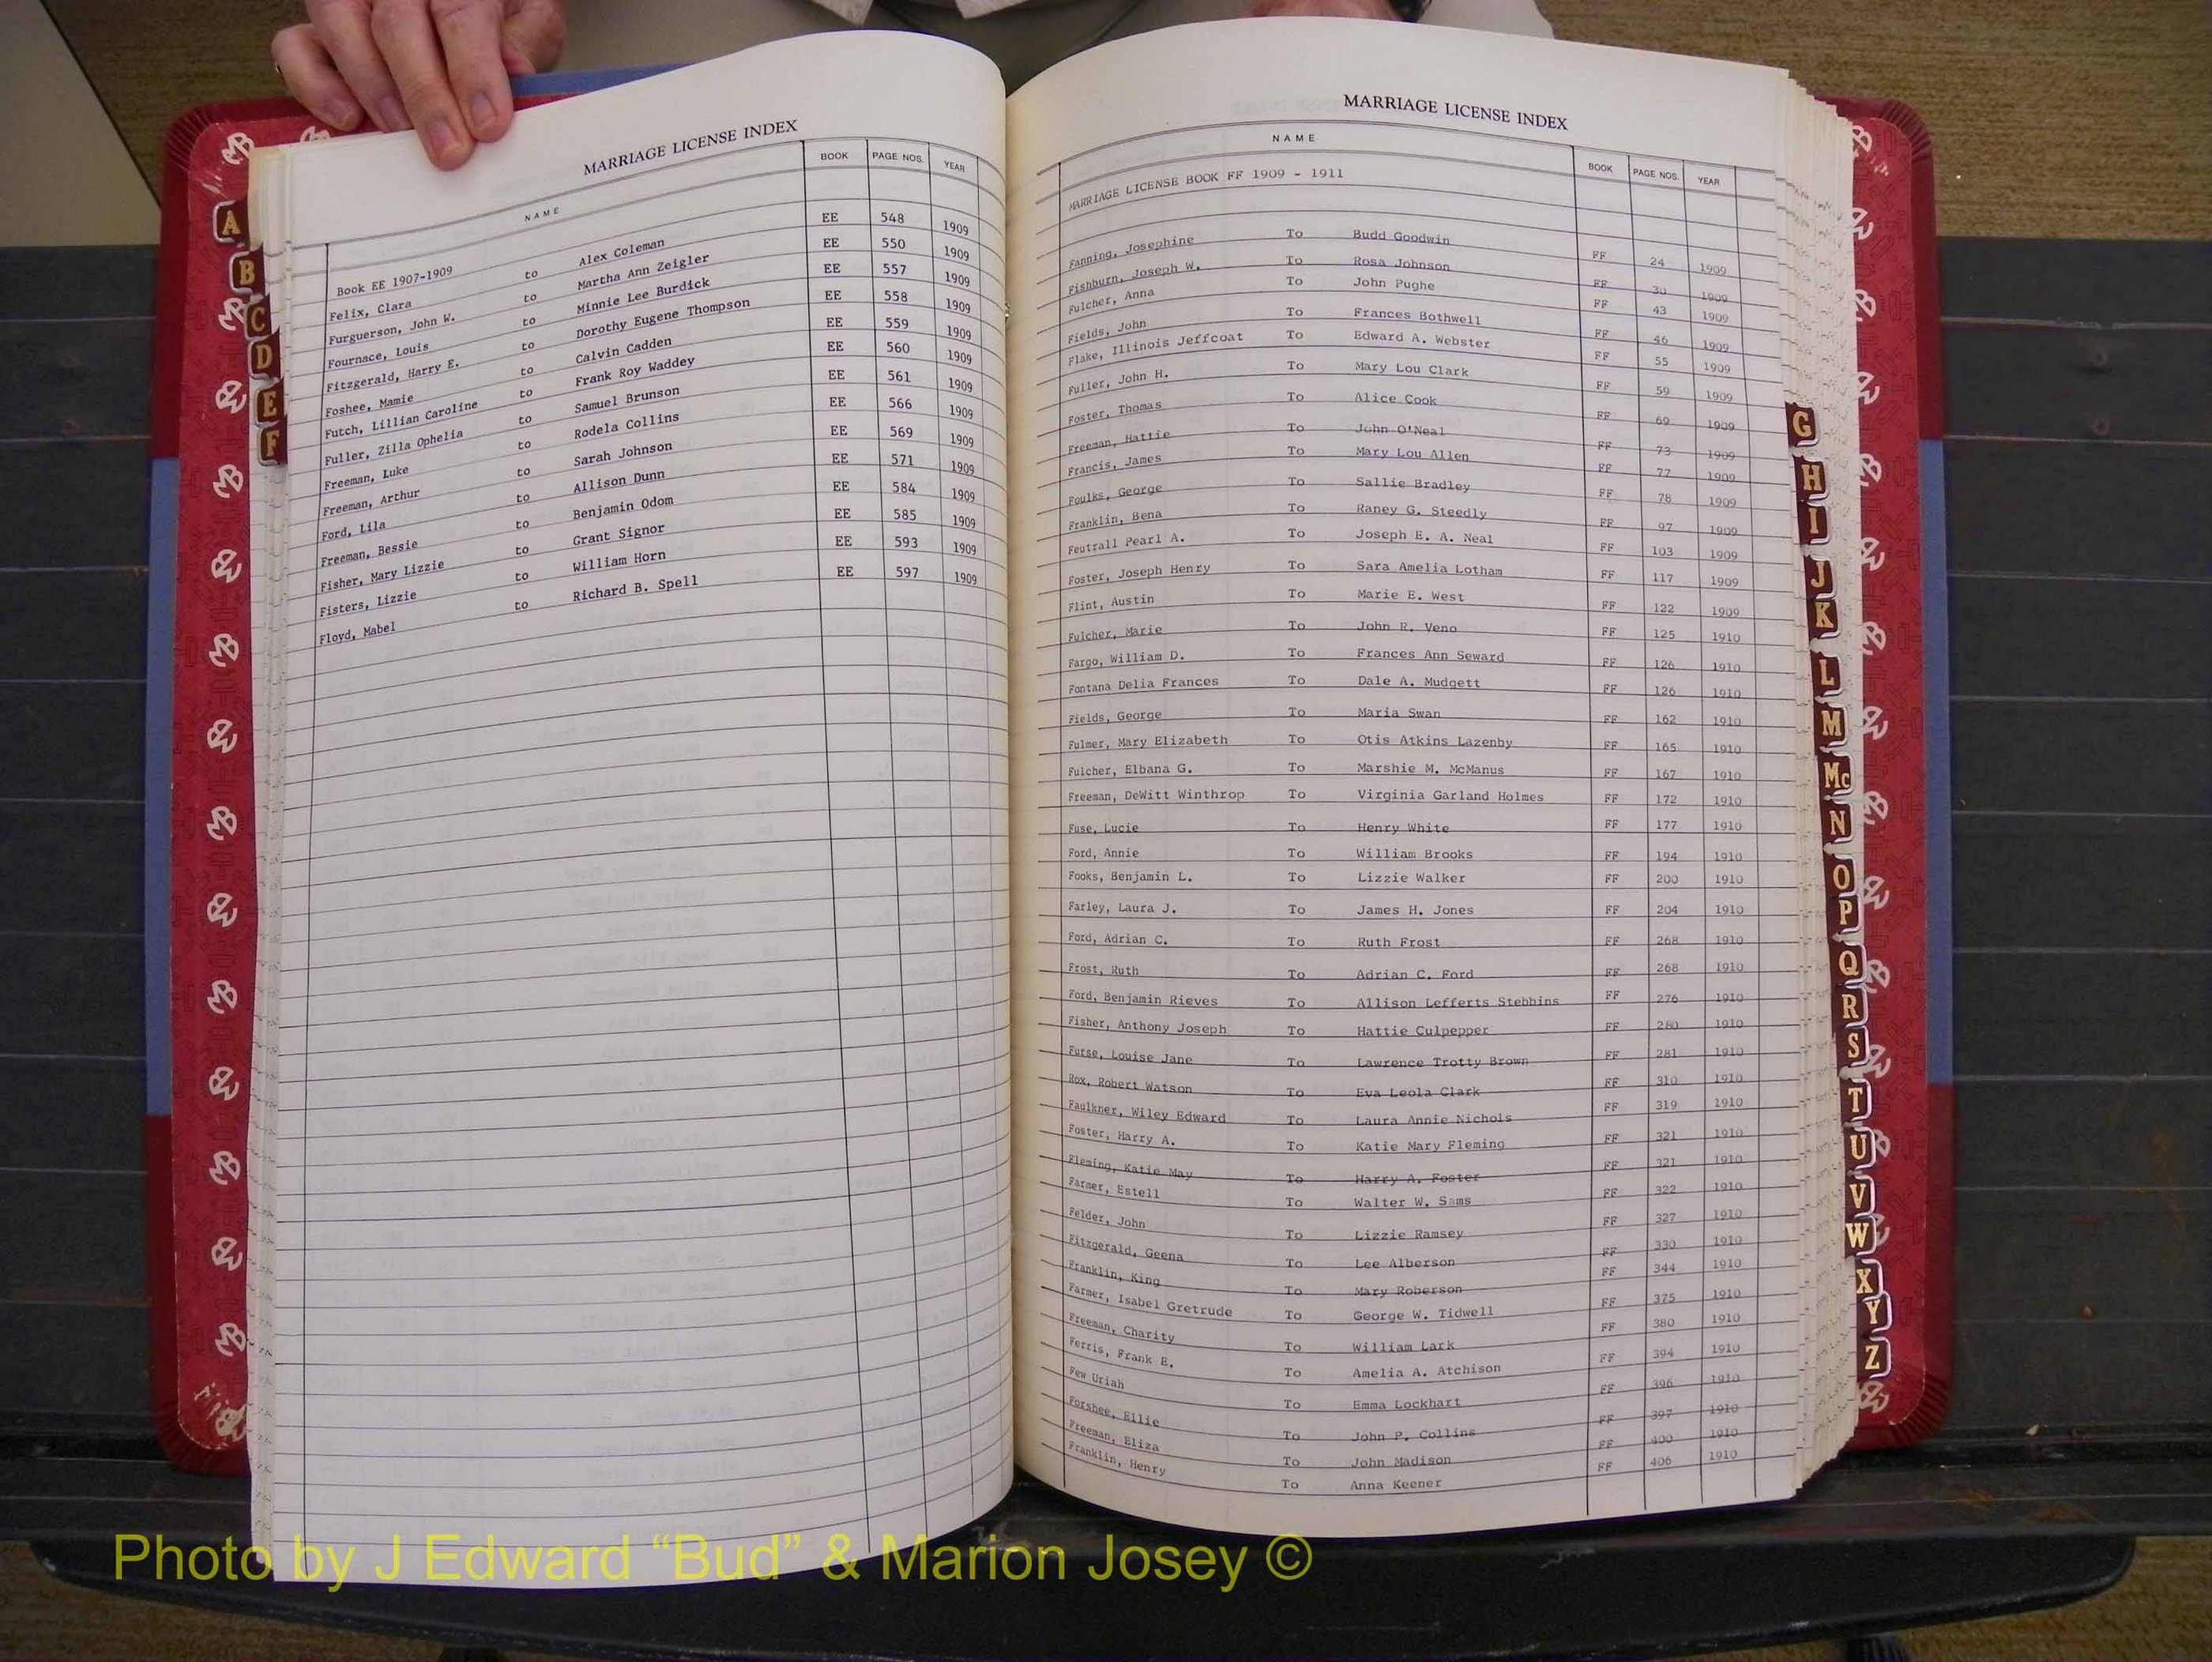 MARRIAGE LICENSE INDEX
NAME BOOK PAGE NOS. YEAR
Book EE 1907-1909
Felix, Clara to Alex Coleman EE 548 1909
Furguerson, John W. to Martha Ann Zeigler EE 550 1909
Fournace, Louis to Minnie Lee Burdick EE 557 1909
Fitzgerald, Harry E. to Dorothy Eugene Thompson EE 558 1909
Foshee, Mamie to Calvin Cadden EE 559 1909
Futch, Lillian Caroline to Frank Roy Waddey EE 560 1909
Fuller, Zilla Ophelia to Samuel Brunson EE 561 1909
Freeman, Luke to Rodela Collins EE 566 1909
Freeman, Arthur to Sarah Johnson EE 569 1909
Ford, Lila to Allison Dunn EE 571 1909
Freeman, Bessie to Benjamin Odom EE 584 1909
Fisher, Mary Lizzie to Grant Signor EE 585 1909
Fisters, Lizzie to William Horn EE 593 1909
Floyd, Mabel to Richard B. Spell EE 597 1909
A
B
C
D
E
F
MARRIAGE LICENSE INDEX
NAME BOOK PAGE NOS. YEAR
MARRIAGE LICENSE BOOK FF 1909 - 1911
Fanning, Josephine To Budd Goodwin FF 24 1909
Fishburn, Joseph W. To Rosa Johnson FF 30 1909
Fulcher, Anna To John Pughe FF 43 1909
Fields, John To Frances Bothwell FF 46 1909
Flake, Illinois Jeffcoat To Edward A. Webster FF 55 1909
Fuller, John H. To Mary Lou Clark FF 59 1909
Foster, Thomas To Alice Cook FF 69 1909
Freeman, Hattie To John O'Neal FF 73 1909
Francis, James To Mary Lou Allen FF 77 1909
Foulks, George To Sallie Bradley FF 78 1909
Franklin, Bena To Raney G. Steedly FF 97 1909
Feutrall Pearl A. To Joseph E. A. Neal FF 103 1909
Foster, Joseph Henry To Sara Amelia Lotham FF 117 1909
Flint, Austin To Marie E. West FF 122 1909
Fulcher, Marie To John R. Veno FF 125 1910
Fargo, William D. To Frances Ann Seward FF 126 1910
Fontana Delia Frances To Dale A. Mudgett FF 126 1910
Fields, George To Maria Swan FF 162 1910
Fulmer, Mary Elizabeth To Otis Atkins Lazenby FF 165 1910
Fulcher, Elbana G. To Marshie M. McManus FF 167 1910
Freeman, DeWitt Winthrop To Virginia Garland Holmes FF 172 1910
Fuse, Lucie To Henry White FF 177 1910
Ford, Annie To William Brooks FF 194 1910
Fooks, Benjamin L. To Lizzie Walker FF 200 1910
Farley, Laura J. To James H. Jones FF 204 1910
Ford, Adrian C. To Ruth Frost FF 268 1910
Frost, Ruth To Adrian C. Ford FF 268 1910
Ford, Benjamin Rieves To Allison Lefferts Stebbins FF 276 1910
Fisher, Anthony Joseph To Hattie Culpepper FF 280 1910
Furse, Louise Jane To Lawrence Trotty Brown FF 281 1910
Rox, Robert Watson To Eva Leola Clark FF 310 1910
Faulkner, Wiley Edward To Laura Annie Nichols FF 319 1910
Foster, Harry A. To Katie Mary Fleming FF 321 1910
Fleming, Katie May To Harry A. Foster FF 321 1910
Farmer, Estell To Walter W. Sams FF 322 1910
Felder, John To Lizzie Ramsey FF 327 1910
Fitzgerald, Geena To Lee Alberson FF 330 1910
Franklin, King To Mary Roberson FF 344 1910
Farmer, Isabel Gretrude To George W. Tidwell FF 375 1910
Freeman, Charity To William Lark FF 380 1910
Ferris, Frank E. To Amelia A. Atchison FF 394 1910
Few Uriah To Emma Lockhart FF 396 1910
Forshee, Ellie To John P. Collins FF 397 1910
Freeman, Eliza To John Madison FF 400 1910
Franklin, Henry To Anna Keener FF 406 1910
G
H
I
J
K
L
M
Mc
N
O
P
Q
R
S
T
U
V
W
X
Y
Z
Photo by J Edward “Bud” & Marion Josey ©